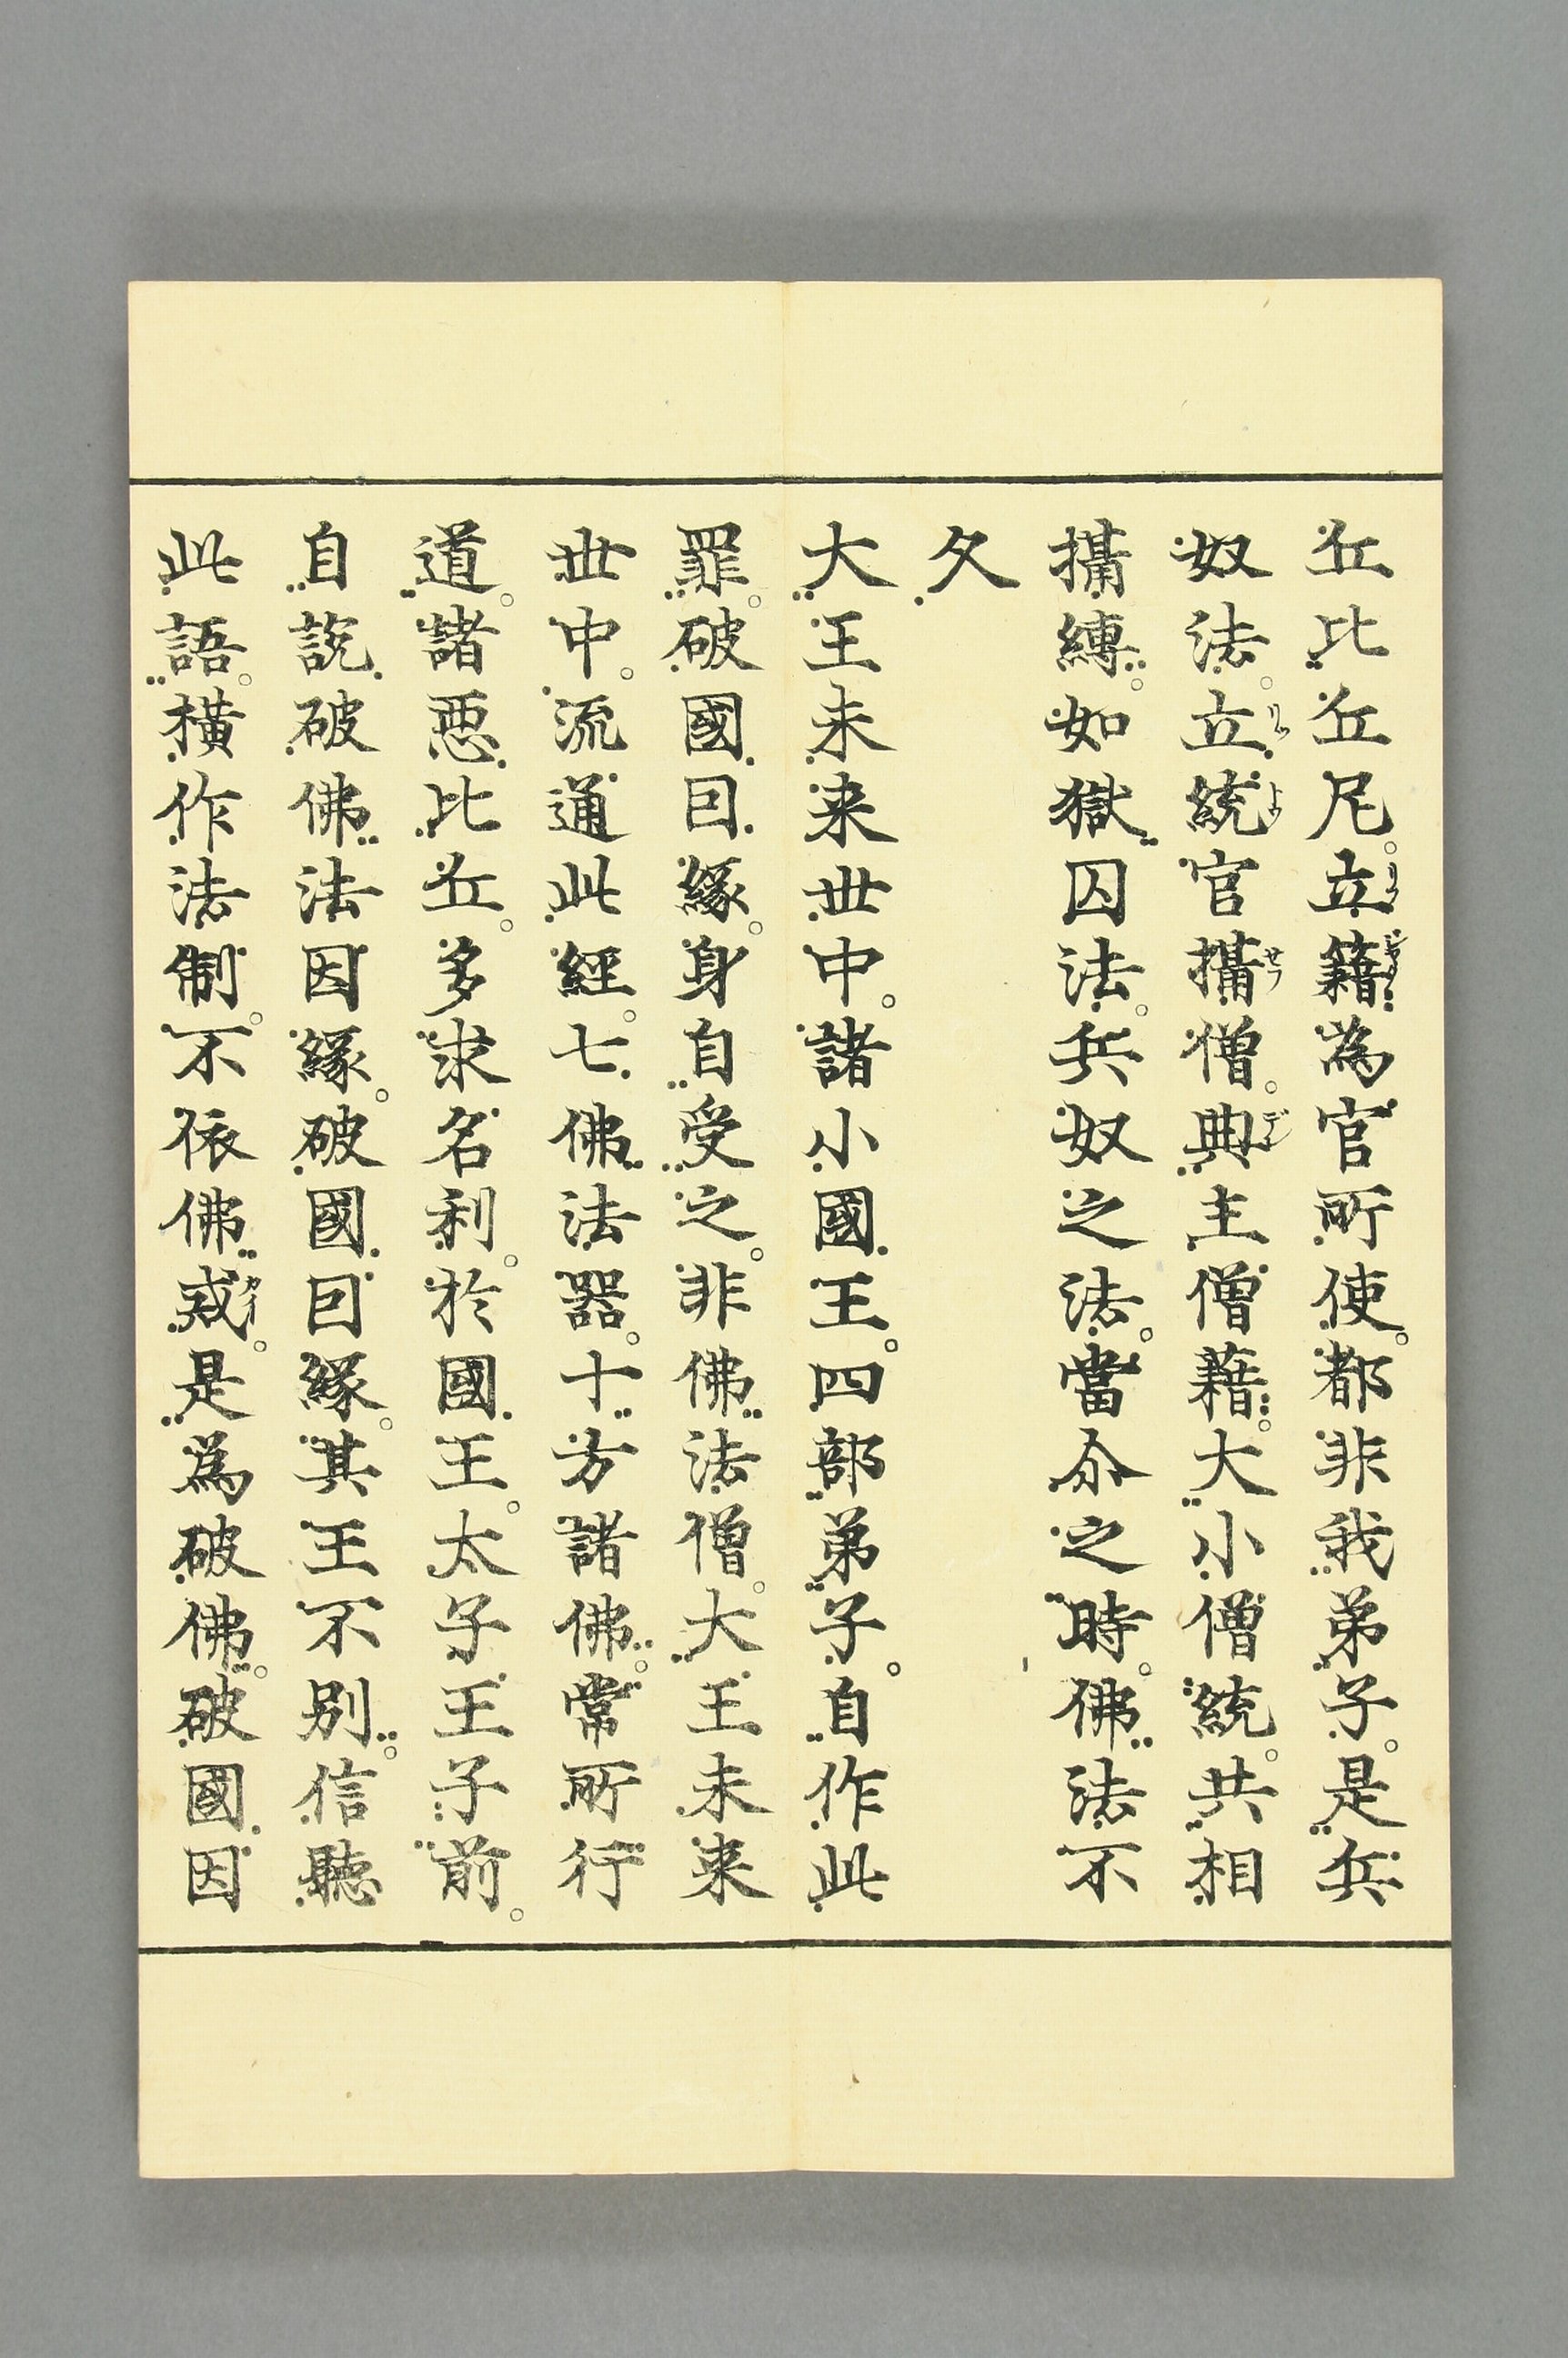 丘比丘尼。立籍為官所使。都非我弟子。是兵
奴法。立統官攝僧。典主僧籍。大小僧統。共相
攝縛。如獄囚法。兵奴之法。當尒之時。佛法不
久
大王未来世中。諸小國王。四部弟子。自作此
罪。破國因緣。身自受之。非佛法僧。大王未来
世中。流通此經。七佛法器。十方諸佛。常所行
道。諸惡比丘。多求名利。於國王。太子王子前。
自説破佛法因緣。破國因緣。其王不別。信聽
此語。横作法制。不依佛戒。是為破佛。破國因